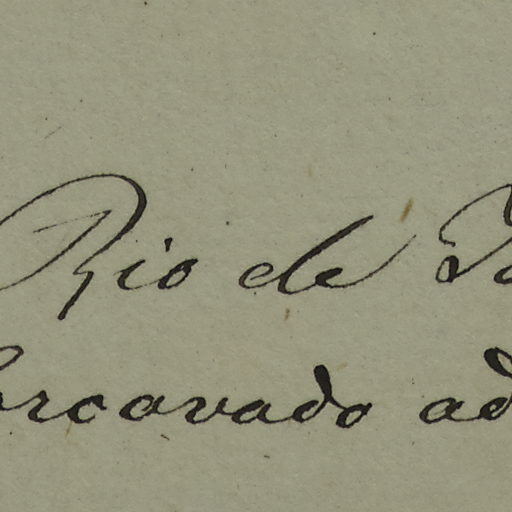 Rio de Ja
orcovado ad